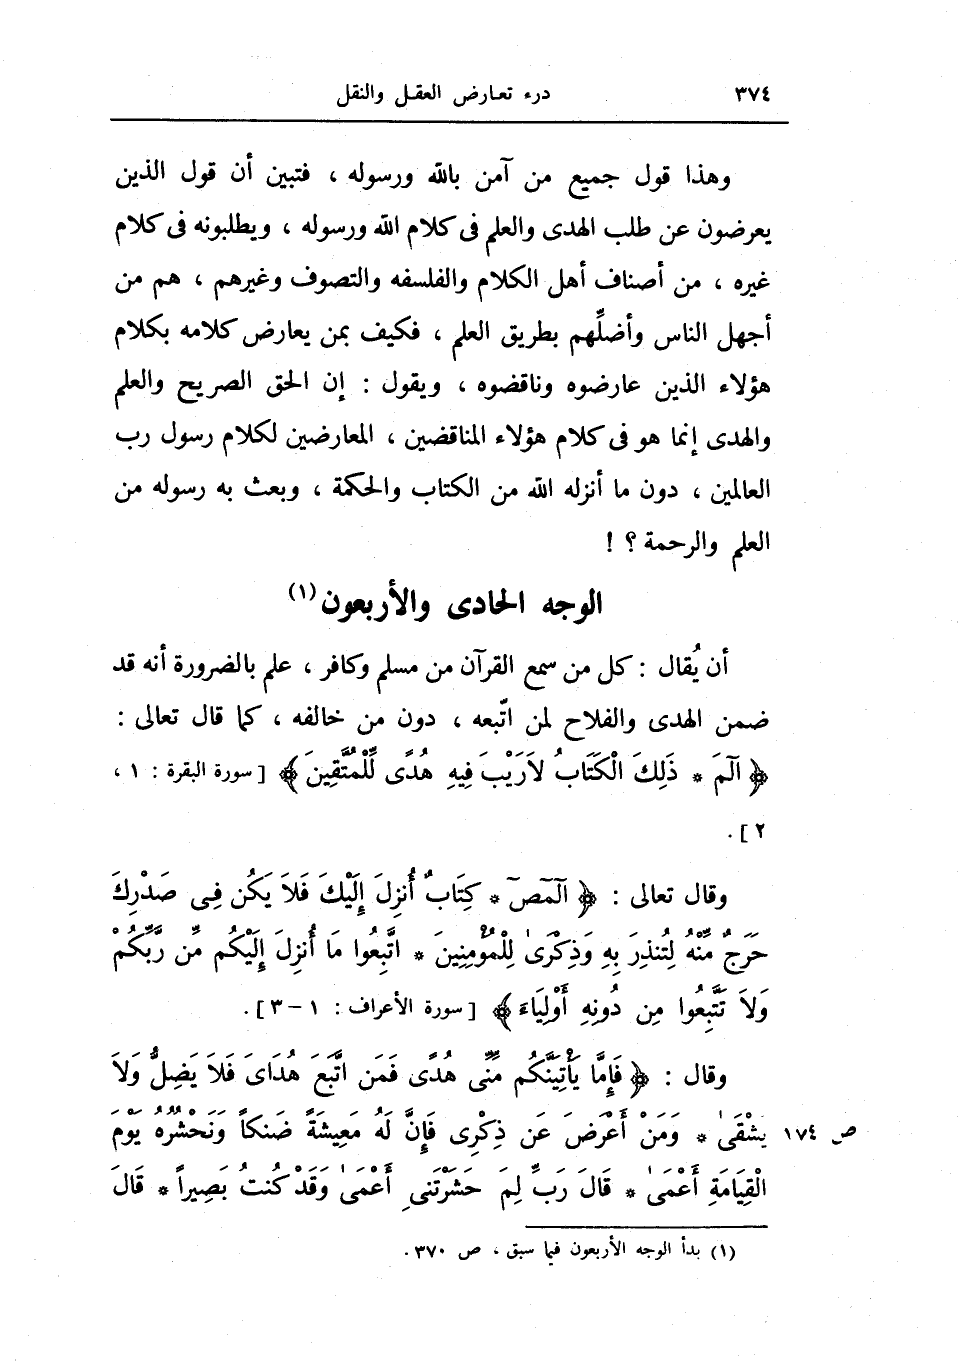 ٣٧٤ درء تعارض العقل والنقل
وهذا قول جميع من آمن بالله ورسوله ، فتبين أن قول الذين
يعرضون عن طلب الهدى والعلم فى كلام الله ورسوله ، ويطلبونه فى كلام
غيره ، من أصناف أهل الكلام والفلسفه والتصوف وغيرهم ، هم من
أجهل الناس وأضلِّهم بطريق العلم ، فكيف بمن يعارض كلامه بكلام
هؤلاء الذين عارضوه وناقضوه ، ويقول : إن الحق الصريح والعلم
والهدى إنما هو فى كلام هؤلاء المناقضين ، المعارضين لكلام رسول رب
العالمين ، دون ما أنزله الله من الكتاب والحكمة ، وبعث به رسوله من
العلم والرحمة ؟ !
الوجه الحادى والأربعون(١)
أن يُقال : كل من سمع القرآن من مسلم وكافر ، علم بالضرورة أنه قد
ضمن الهدى والفلاح لمن اتّبعه ، دون من خالفه ، كما قال تعالى :
﴿ آلَمَ * ذَلِكَ الْكَتَابُ لاَرَيْبَ فِيهِ هُدًى لِّلْمُتَّقِينَ ﴾ [ سورة البقرة : ١ ،
٢ ] .
وقال تعالى : ﴿ آلَمَصَ * كِتَابٌ أُنزِلَ إِلَيْكَ فَلاَ يَكُن فِى صَدْرِكَ
حَرَجٌ مِّنْهُ لِتُنذِرَ بِهِ وَذِكْرَىٰ لِلْمُؤْمِنِينَ * اتَّبِعُوا مَا أُنزِلَ إِلَيْكُم مِّن رَّبِّكُمْ
وَلاَ تَتَّبِعُوا مِن دُونِهِ أَوْلِيَاءَ ﴾ [ سورة الأعراف : ١ - ٣ ] .
وقال : ﴿ فَإِمَّا يَأْتِيَنَّكُم مِّنِّى هُدًى فَمَن اتَّبَعَ هُدَاىَ فَلاَ يَضِلُّ وَلاَ
ص ١٧٤ يَشْقَىٰ * وَمَنْ أَعْرَضَ عَن ذِكْرِى فَإِنَّ لَهُ مَعِيشَةً ضَنكاً وَنَحْشُرُهُ يَوْمَ
الْقِيَامَةِ أَعْمَىٰ * قَالَ رَبِّ لِمَ حَشَرْتَنِى أَعْمَىٰ وَقَدْ كُنتُ بَصِيراً * قَالَ
(١) بدأ الوجه الأربعون فيما سبق ، ص ٣٧٠ .